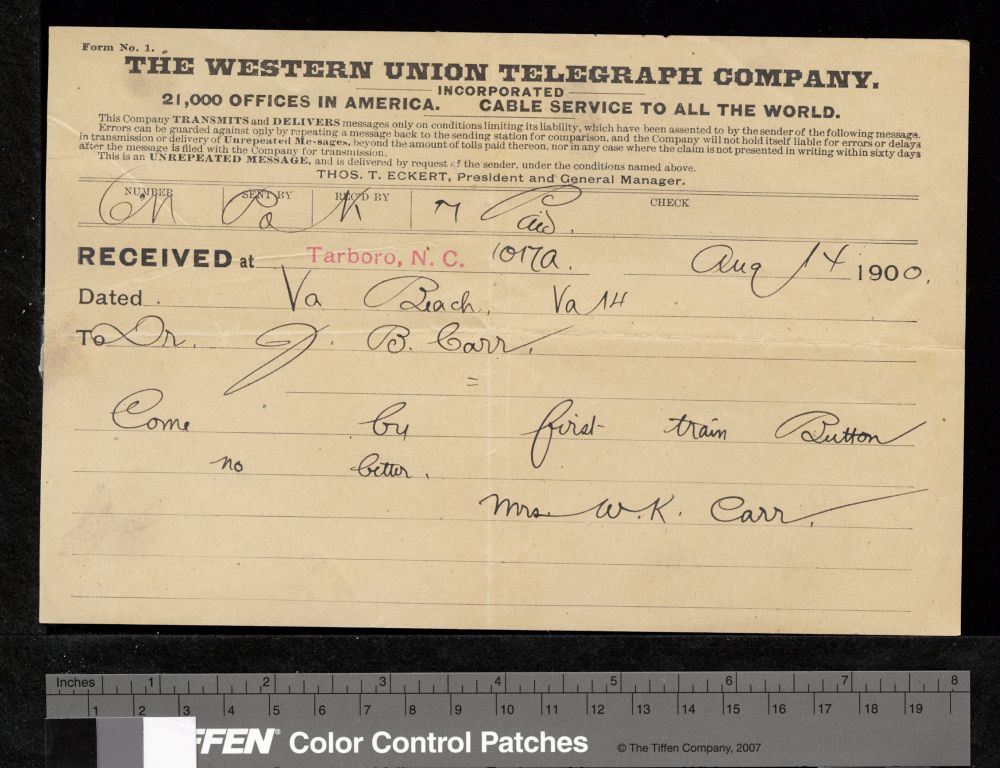 Form No. 1.
THE WESTERN UNION TELEGRAPH COMPANY.
INCORPORATED
21,000 OFFICES IN AMERICA. CABLE SERVICE TO ALL THE WORLD.
This Company TRANSMITS and DELIVERS messages only on conditions limiting its liability, which have been assented to by the sender of the following message.
Errors can be guarded against only by repeating a message back to the sending station for comparison, and the Company will not hold itself liable for errors or delays
in transmission or delivery of Unrepeated Messages, beyond the amount of tolls paid thereon, nor in any case where the claim is not presented in writing within sixty days
after the message is filed with the Company for transmission.
This is an UNREPEATED MESSAGE, and is delivered by request of the sender, under the conditions named above.
THOS. T. ECKERT, President and General Manager.
NUMBER SENT BY REC'D BY CHECK
Pa K 7 Paid.
RECEIVED at Tarboro, N. C. 1017a. Aug 14 1900.
Dated Va Beach, Va 14
To Dr. J. B. Carr.
=
Come by first train Button
no better.
Mrs. W. K. Carr.
Inches 1 2 3 4 5 6 7 8
1 2 3 4 5 6 7 8 9 10 11 12 13 14 15 16 17 18 19
FFEN® Color Control Patches © The Tiffen Company, 2007